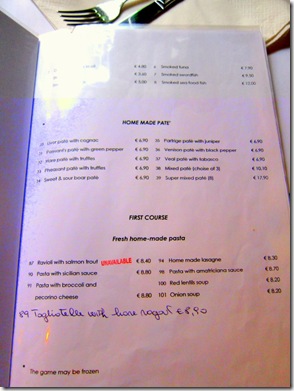 € 4.80 6 Smoked tuna € 7.90
€ 5.50 7 Smoked swordfish € 9.50
€ 5.00 8 Smoked sea food fish € 12.00
HOME MADE PATE'
pate with cognac € 6.90 35 Partrige pate with juniper € 6.90
pate with green pepper € 6.90 36 Venison pate with black pepper € 6.90
Hare pate with truffles € 6.90 37 Veal pate with tobacco € 6.90
Pheasant pate with truffles € 6.90 38 Mixed pate (choise of 3) € 10.10
34 Sweet & sour boar pate € 6.90 39 Super mixed pate (8) € 17.90
FIRST COURSE
Fresh home-made pasta
87 Ravioli with salmon trout UNAVAILABLE € 8.40 94 Home made lasagne € 8.30
90 Pasta with sicilian sauce € 8.80 98 Pasta with amatriciana sauce € 8.70
91 Pasta with broccoli and 100 Red lentils soup € 8.20
pecorino cheese € 8.80 101 Onion soup € 8.20
89 Tagliatelle with hare ragout € 8,90
The game may be frozen